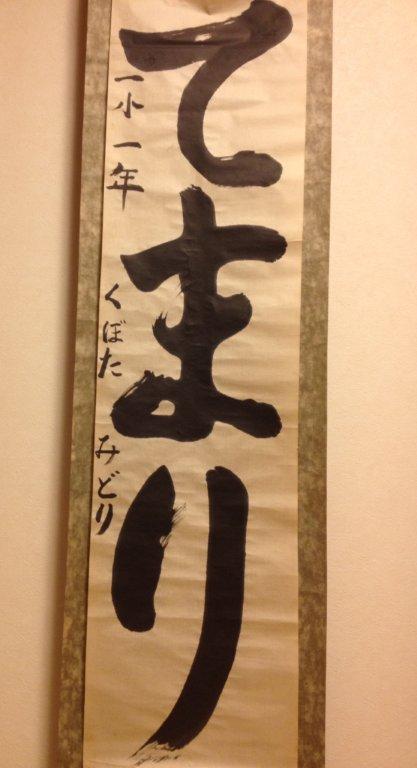 てまり
一小一年 くぼた みどり